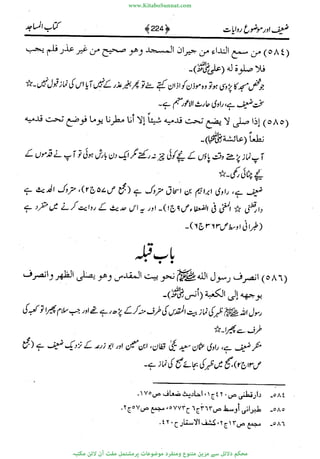 www.KitaboSunnat.com
ضعیف اور موضوع روایات ﴿224﴾ کتاب المساجد
(٥٨٤) من سمع النداء من جیران المسجد وهو صحیح من غیر عذر فلم یجب
فلا صلوة له (علیؓ)۔
جو شخص مسجد کا پڑوسی ہو تو وہ مؤذن کو اذان کہتے سنے تو پھر بغیر عذر کے نہیں آیا اس کی نماز قبول نہیں۔☆
سخت ضعیف ہے، راوی حارث الاعور متہم ہے۔
(٥٨٥) إذا صلى لا یضع تحت قدمیه شیئاً إلا أنا مطرنا یوما فوضع تحت قدمیه
نطعاً (عائشةؓ)۔
آپ نماز پڑھتے وقت پاؤں کے نیچے کوئی چیز نہ رکھتے مگر ایک دن بارش ہوئی تو آپ نے قدموں کے
نیچے چٹائی رکھی۔☆
ضعیف ہے، راوی ابراہیم بن اسحاق متروک ہے (مجمع ص٥٧ ج٢)، متروک الحدیث ہے
دارقطنی ☆ المغنی فی الضعفاء ص٩ ج١)۔ اور یہ اس حدیث کے روایت کرنے میں متفرد ہے
(طبرانی اوسط ص٣٦٣ ج٦)۔
باب قبلہ
(٥٨٦) انصرف رسول الله ﷺ نحو بیت المقدس وهو یصلی الظهر وانصرف
بوجهه إلى الكعبة (أنسؓ)۔
رسول اللہ ﷺ ظہر کی نماز بیت المقدس کی طرف منہ کر کے پڑھ رہے تھے اور جب سلام پھیرا تو کعبہ کی
طرف سے پھیرا۔☆
منکر ضعیف ہے، راوی عثمان سعید یحییٰ قطان، ابن معین اور ابو زرعہ کے نزدیک ضعیف ہے (مجمع
ص١٣ ج٢)، صحیح میں ظہر کی بجائے صبح کی نماز ہے۔
٥٨٤۔ دارقطنی ص٤٢٠ ج١، احادیث ضعاف ص١٧٥۔
٥٨٥۔ طبرانی أوسط ص٣٦٣ ج٦ ح٥٧٧٣، مجمع ص٥٧ ج٢۔
٥٨٦۔ مجمع ص١٣ ج٢، کشف الاستار ح٤٢٠۔
محکم دلائل سے مزین متنوع ومنفرد موضوعات پر مشتمل مفت آن لائن مکتبہ